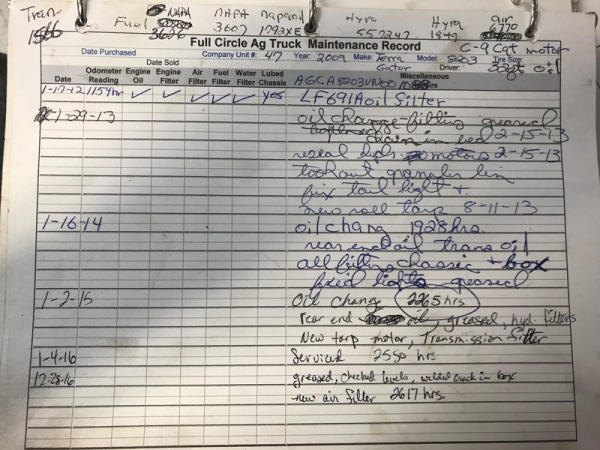 Tran- Fuel NAPA NAPA napagold Hyro Hyro air
1566 3626 3607 1792XE 557247 1849 6770
Full Circle Ag Truck Maintenance Record C-9 Cat motor
Date Purchased Company Unit #: 47 Year: 2009 Make: Terra Gator Model: 8203 Tire Size:
Date Sold Driver: oil
Date Odometer Reading Engine Oil Engine Filter Air Filter Fuel Filter Water Filter Lubed Chassis Miscellaneous
AGCA8203
1-17-12 1154hr ✓ ✓ ✓ ✓ ✓ yes LF691A oil filter
1-29-13 oil change-filters greased
chain in bed 2-15-13
reseal hyds motors 2-15-13
took out granular bin
fix tail light +
new roll tarp 8-11-13
1-16-14 oil chang 1928hrs.
rear end oil trans oil
all filters chassic + box
fixed lights greased
1-2-15 Oil Change 2265 hrs
rear end oil, greased, hyd. filters
New tarp motor, Transmission filter
1-4-16 Serviced 2550 hrs
12-28-16 greased, checked levels, welded crack in box
new air filter 2617 hrs.